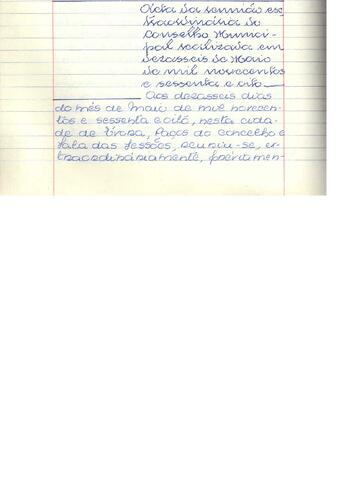 Acta da reunião ex-
traordinária do
Conselho Munici-
pal realizada em
dezasseis de Maio
de mil novecentos
e sessenta e oito
Aos dezasseis dias
do mês de Maio de mil novecen-
tos e sessenta e oito, nesta cida-
de de Évora, Paços do Concelho e
Sala das Sessões, reuniu-se, ex-
traordinàriamente, prèviamen-